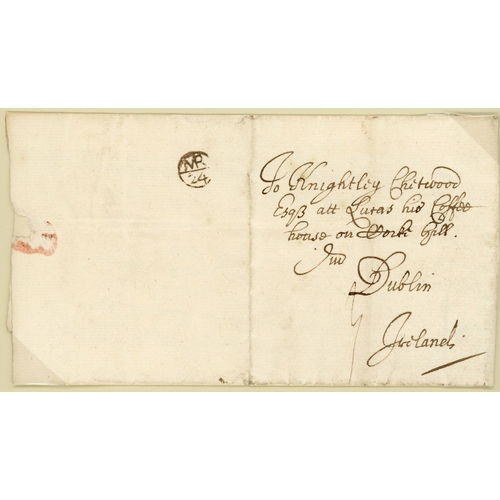 MR
24
To Knightley Chetwood
Esqß att Lucas his Coffee
house on Hill.
Dublin
Ireland